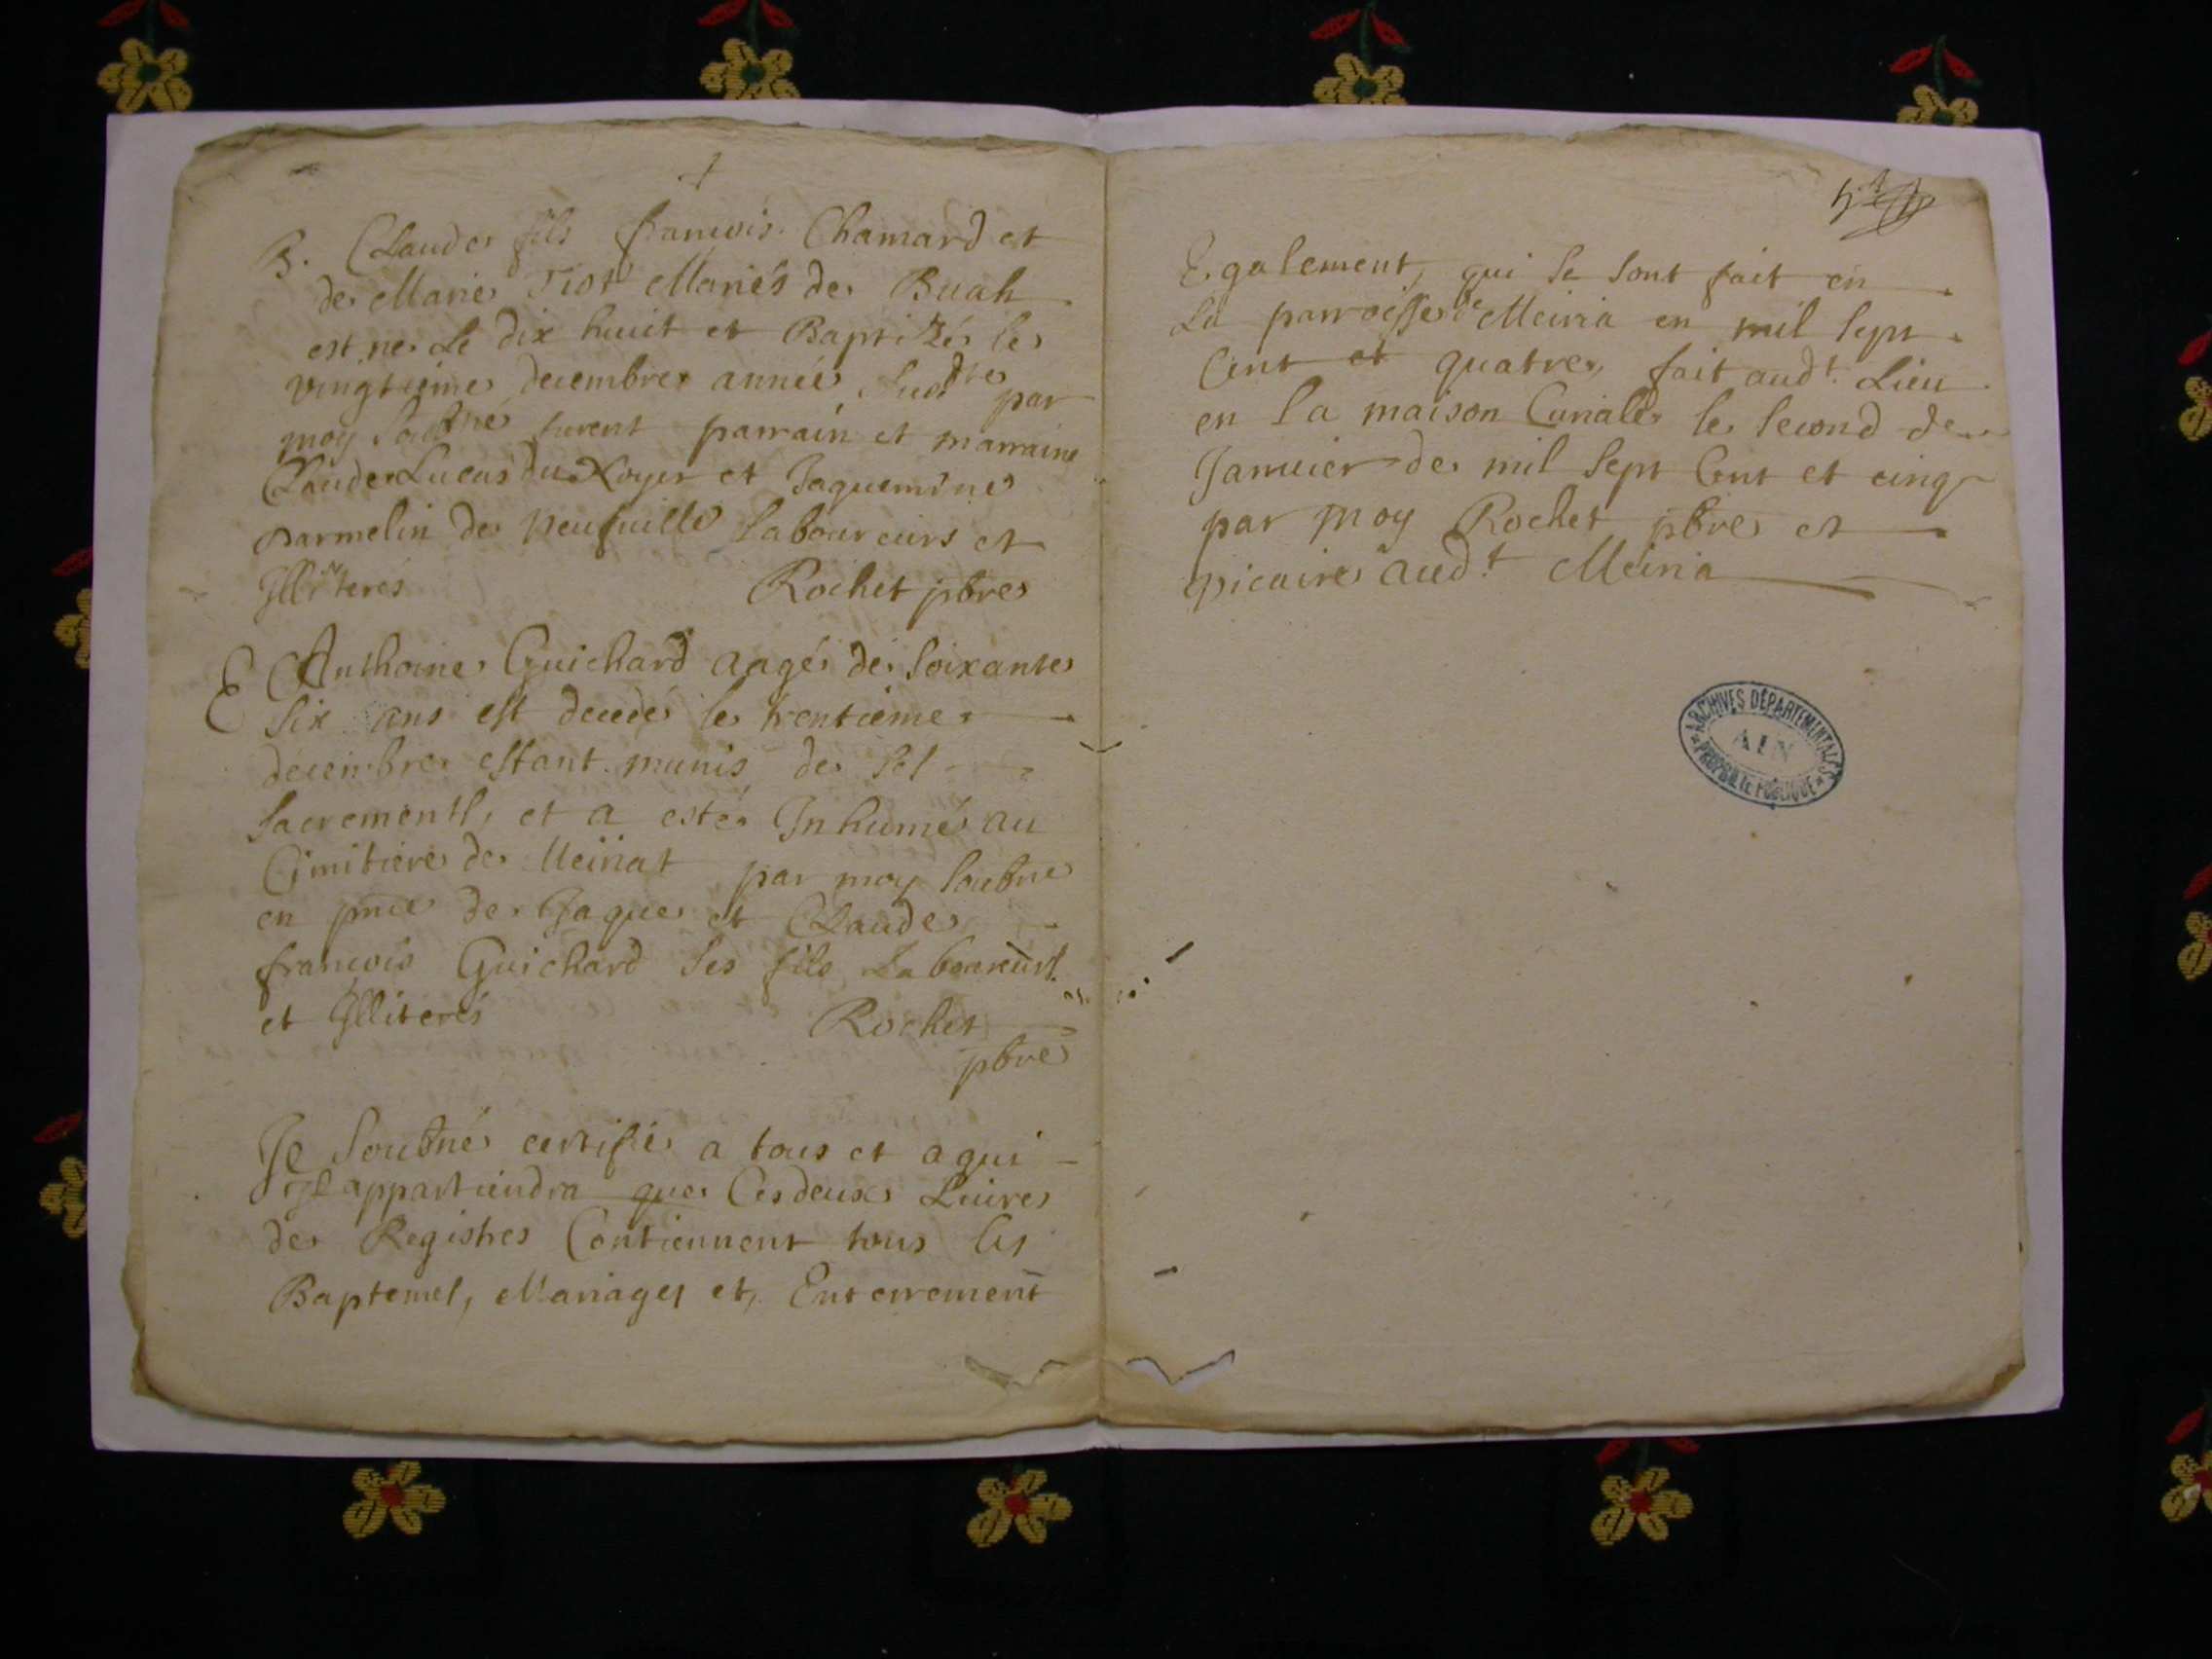 B. Claude fils francois Chamard et
de Marie Tiot Mariés de Buah
est ne Le dix huit et Baptizé le
vingtieme decembre année susdte par
moy soubné furent parrain et marraine
Claude Lucas du Noyer et Jaquemine
parmelin de peufuille laboureurs et
Jlliterés Rochet pbre
E Anthoine Guichard aagé de soixante
six ans est decedé le trentieme
decembre estant munis de ses
sacrements, et a esté Jnhumé au
Cimitiere de Meiriat par moy soubné
en pnce de Jaque et Claude
francois Guichard ses fils Laboureurs
et Jlliterés Rochet
pbre
Je soubné certifie a tous et a qui
Jl appartiendra que Ces deux Liures
de Registres Contiennent tous les
Baptemes, Mariages et, Enterrement
Egalement, qui se sont fait en
La parroisse de Meiria en mil sept
Cent et quatre, fait audt. Lieu
en la maison Curiale le second de
Januier de mil sept Cent et cinq
par moy Rochet pbre et
vicaire audt Meiria
ARCHIVES DÉPARTEMENTALES
AIN
PROPRIÉTÉ PUBLIQUE